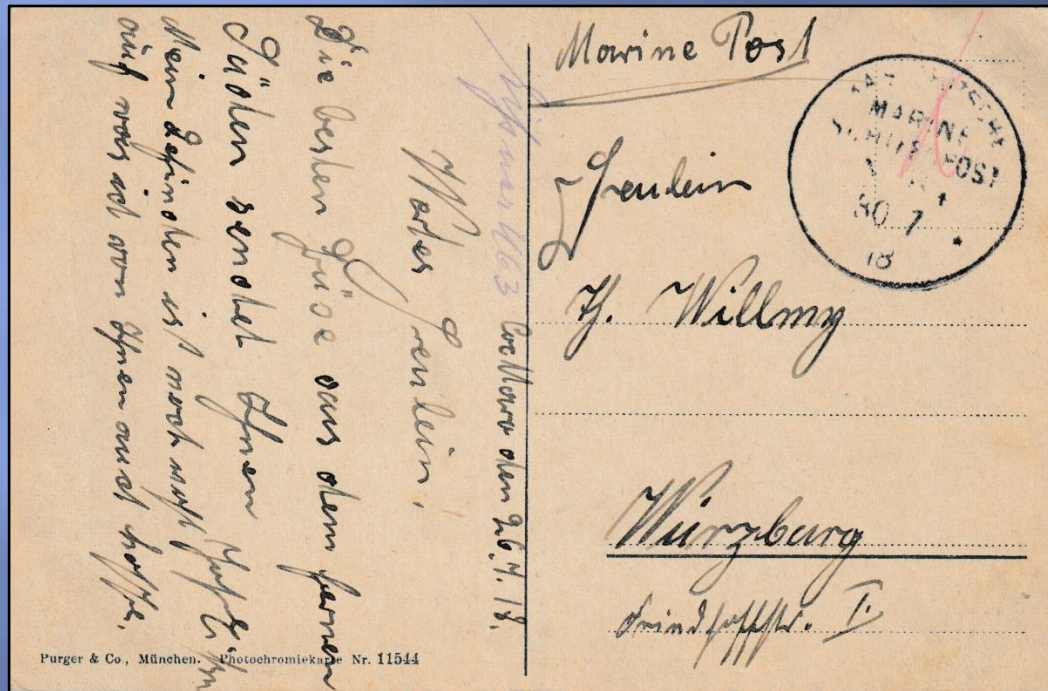 Marine Post
MARINE
SCHIFFSPOST
30 7
18
Freulein
Th. Willmy
Würzburg
I.
den 26.7.18.
Wertes Freulein!
Die besten Grüse aus dem fernen
Süden sendet Ihnen
Mein Befinden ist noch
auf was ich von Ihnen auch hoffe.
Purger & Co., München. Photochromiekarte Nr. 11544